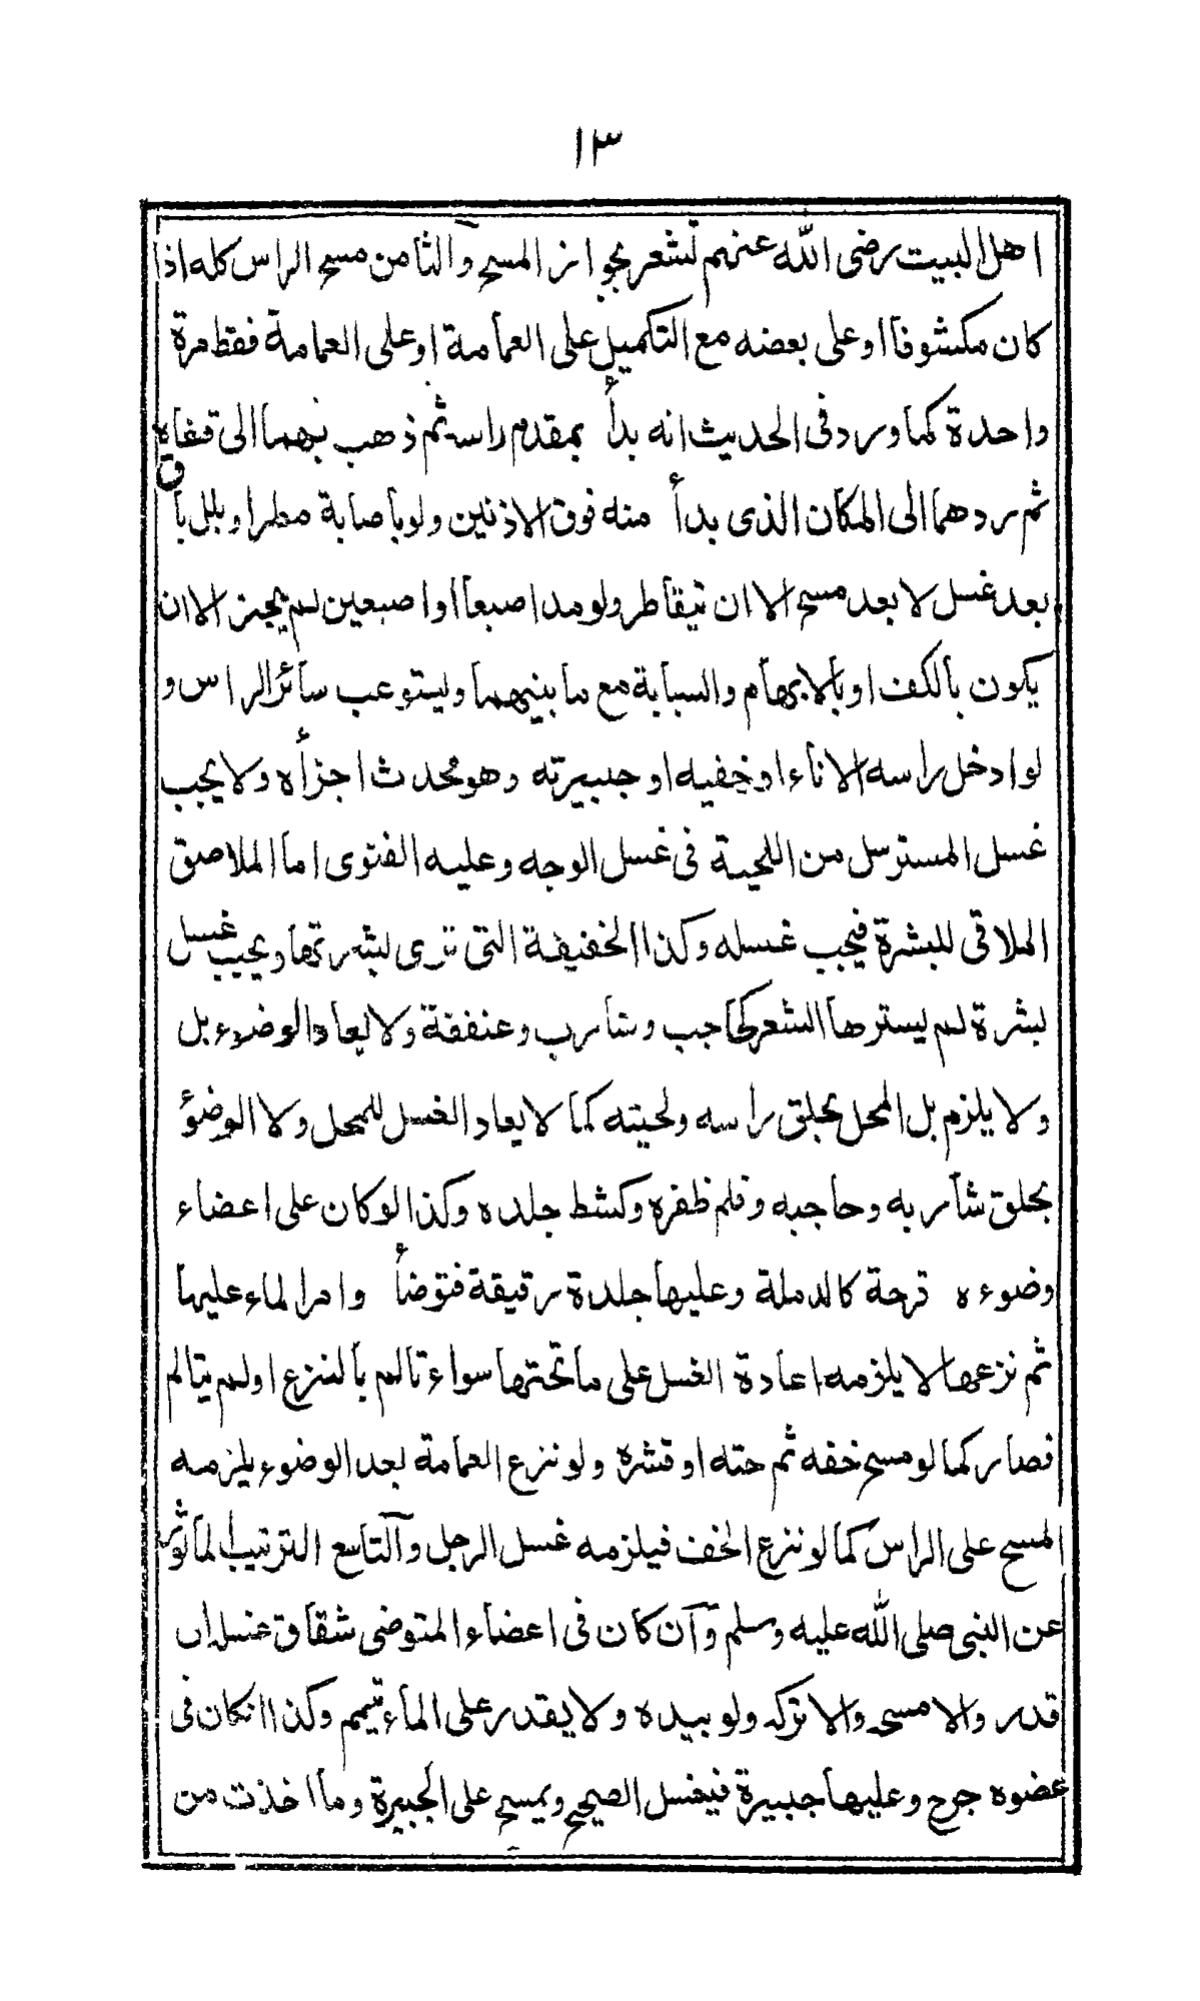 ١٣
اهل البيت رضى الله عنهم تشعر بجواز المسح والثامن مسح الراس كله اذا
كان مكشوفا او على بعضه مع التكميل على العمامة او على العمامة فقط مرة
واحدة كما ورد فى الحديث انه بدأ بمقدم راسه ثم ذهب بهما الى قفاه
ثم ردهما الى المكان الذى بدأ منه فوق الاذنين ولو باصابة مطر او بلل باق
بعد غسل لا بعد مسح الا ان تيقاطر ولو مد اصبعا او اصبعين لم يجز الا ان
يكون بالكف او بالابهام والسبابة مع ما بينهما ويستوعب سائر الراس و
لو ادخل راسه الاناء او خفيه او جبيرته وهو محدث اجزأه ولا يجب
غسل المسترسل من اللحية فى غسل الوجه وعليه الفتوى اما الملاصق
الملاقى للبشرة فيجب غسله وكذا الخفيفة التى ترى بشرتها ويجب غسل
بشرة لم يسترها الشعر كحاجب وشارب وعنفقة ولا يعاد الوضوء بل
ولا يلزم بل المحل بحلق راسه ولحيته كما لا يعاد الغسل للمحل ولا الوضؤ
بحلق شاربه وحاجبه وقلم ظفره وكشط جلده وكذا لو كان على اعضاء
وضوءه قرحة كالدملة وعليها جلدة رقيقة فتوضأ وامر الماء عليها
ثم نزعها لا يلزمه اعادة الغسل على ما تحتها سواء تالم بالنزع اولم يتالم
فصار كما لو مسح خفه ثم حته او قشره ولو نزع العمامة بعد الوضوء يلزمه
المسح على الراس كما لو نزع الخف فيلزمه غسل الرجل والتاسع الترتيب الماثور
عن النبى صلى الله عليه وسلم وان كان فى اعضاء المتوضى شقاق غسل ان
قدر والا مسح والا تركه ولو بيده ولا يقدر على الماء تيمم وكذا انكان فى
عضوه جرح وعليها جبيرة فيغسل الصحيح ويمسح على الجبيرة وما اخذت من